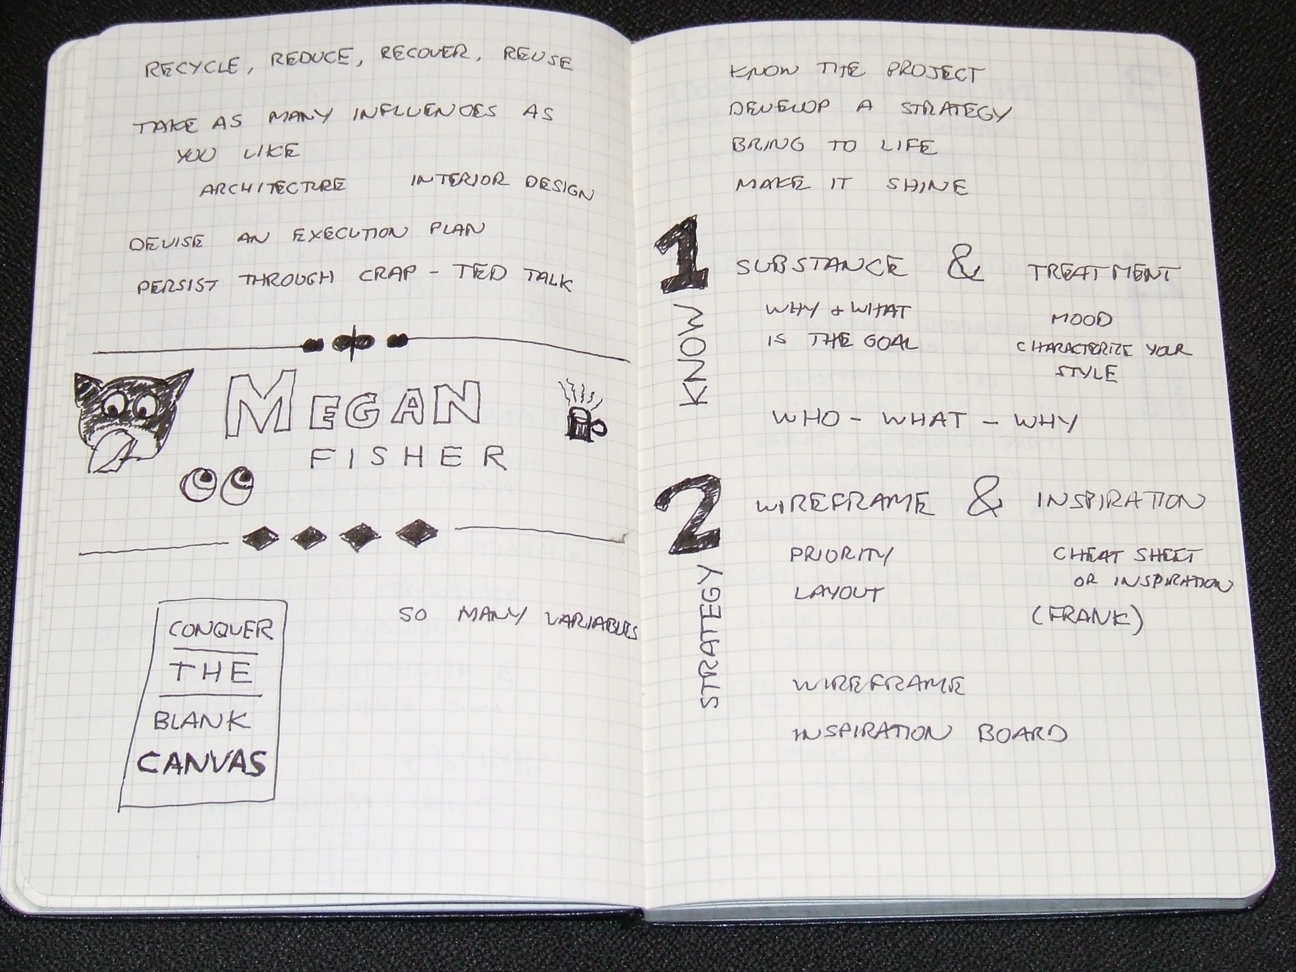 RECYCLE, REDUCE, RECOVER, REUSE
TAKE AS MANY INFLUENCES AS
YOU LIKE
ARCHITECTURE INTERIOR DESIGN
DEVISE AN EXECUTION PLAN
PERSIST THROUGH CRAP - TED TALK
MEGAN
FISHER
CONQUER
THE
BLANK
CANVAS
SO MANY VARIABLES
KNOW THE PROJECT
DEVELOP A STRATEGY
BRING TO LIFE
MAKE IT SHINE
1 SUBSTANCE & TREATMENT
KNOW
WHY + WHAT
IS THE GOAL
MOOD
CHARACTERIZE YOUR
STYLE
WHO - WHAT - WHY
2 WIREFRAME & INSPIRATION
STRATEGY
PRIORITY
LAYOUT
CHEAT SHEET
OR INSPIRATION
(FRANK)
WIREFRAME
INSPIRATION BOARD